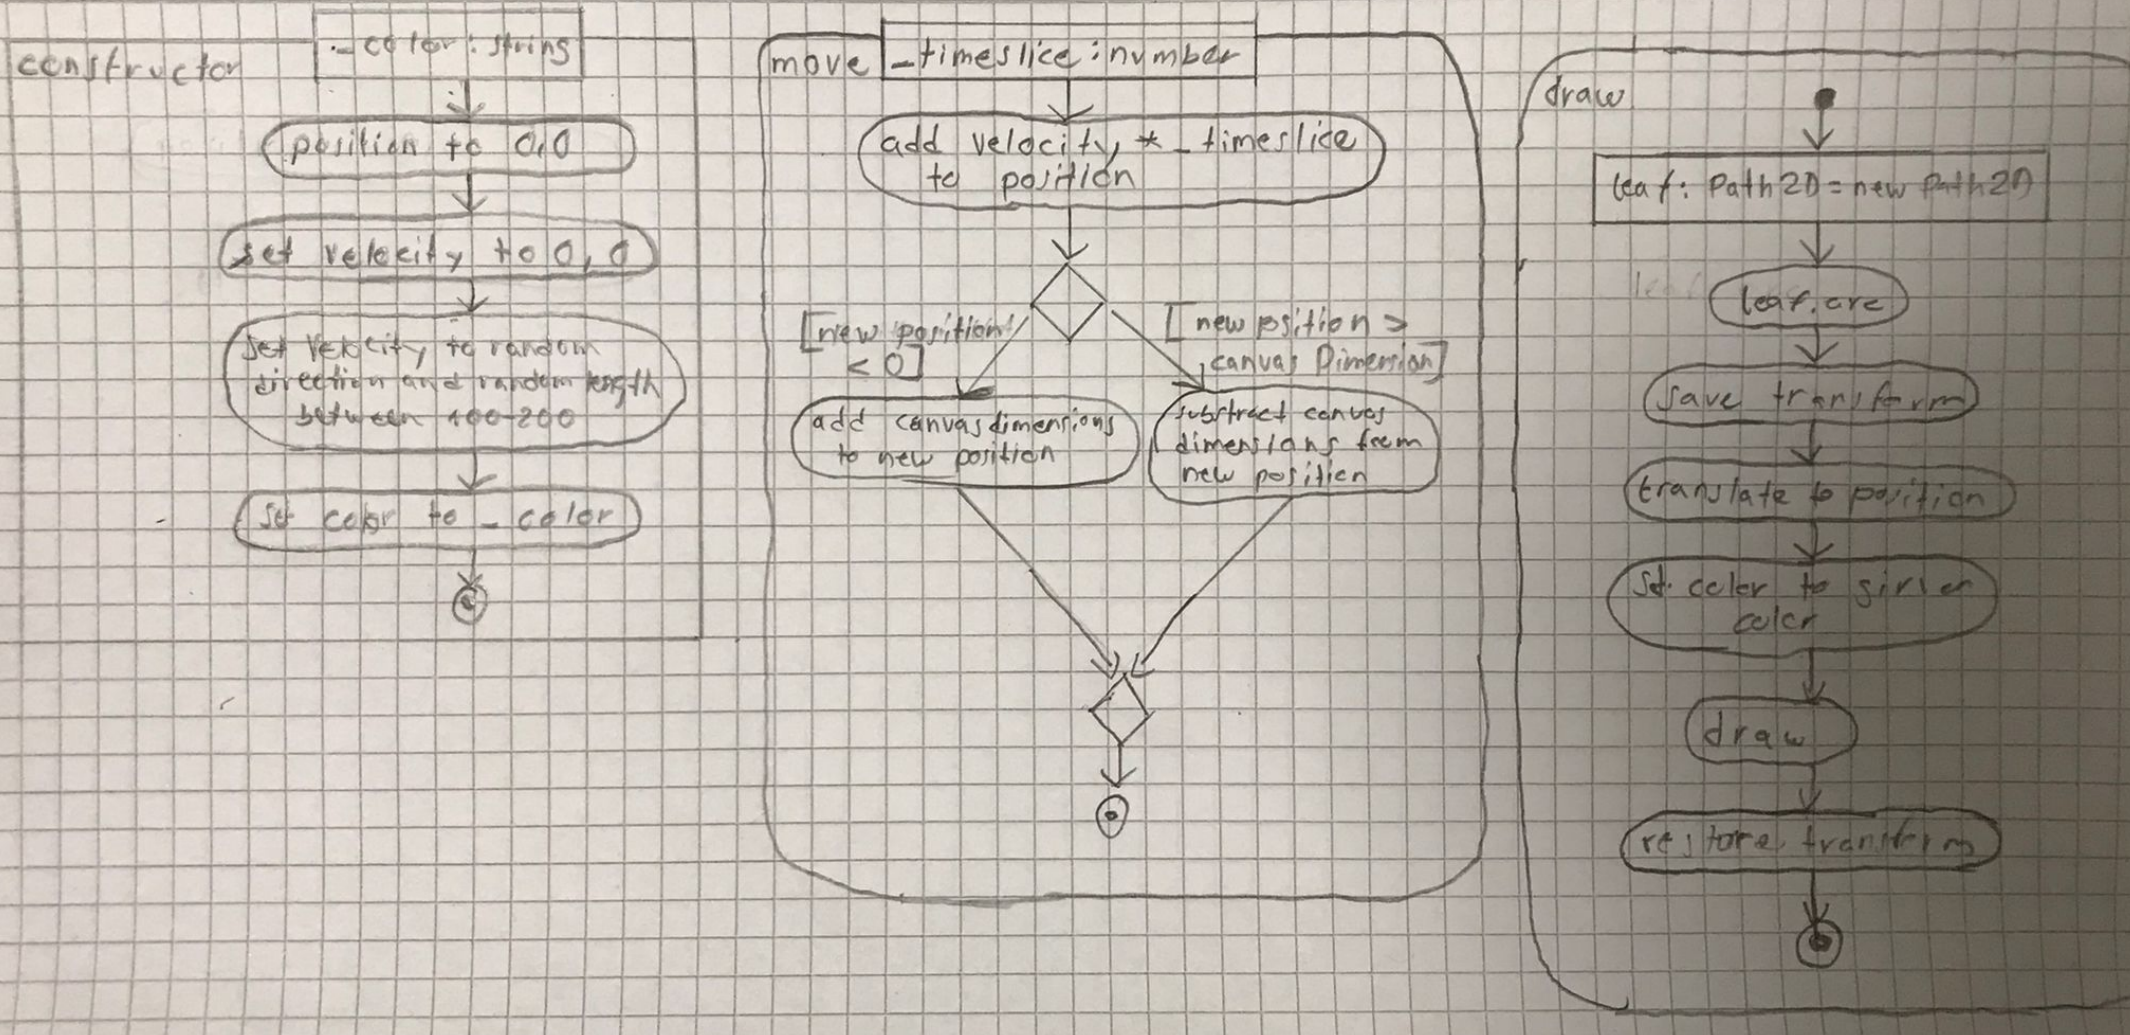 constructor
_color: string
position to 0,0
set velocity to 0,0
set velocity to random
direction and random length
between 100-200
set color to _color
move
_timeslice: number
add velocity * _timeslice
to position
[new position
< 0]
[new psition >
canvas Dimension]
add canvasdimensions
to new position
substract canvas
dimensions from
new position
draw
leaf: Path2D = new Path2D
leaf.arc
save transform
translate to position
set color to
color
draw
restore transform